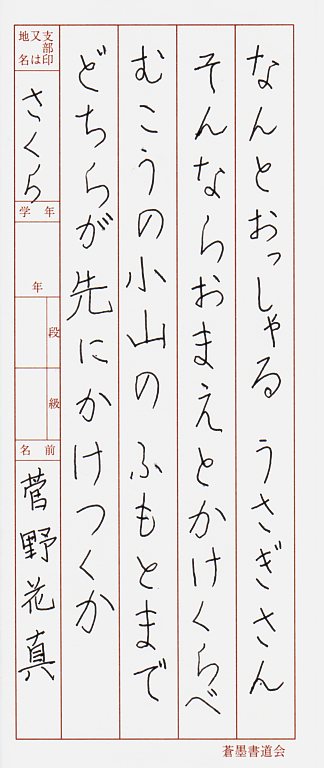 なんとおっしゃる うさぎさん
そんならおまえとかけくらべ
むこうの小山の ふもとまで
どちらが先にかけつくか
支部印
又は
地名
さくら
学年
年
段
級
名前
菅野花真
蒼墨書道会